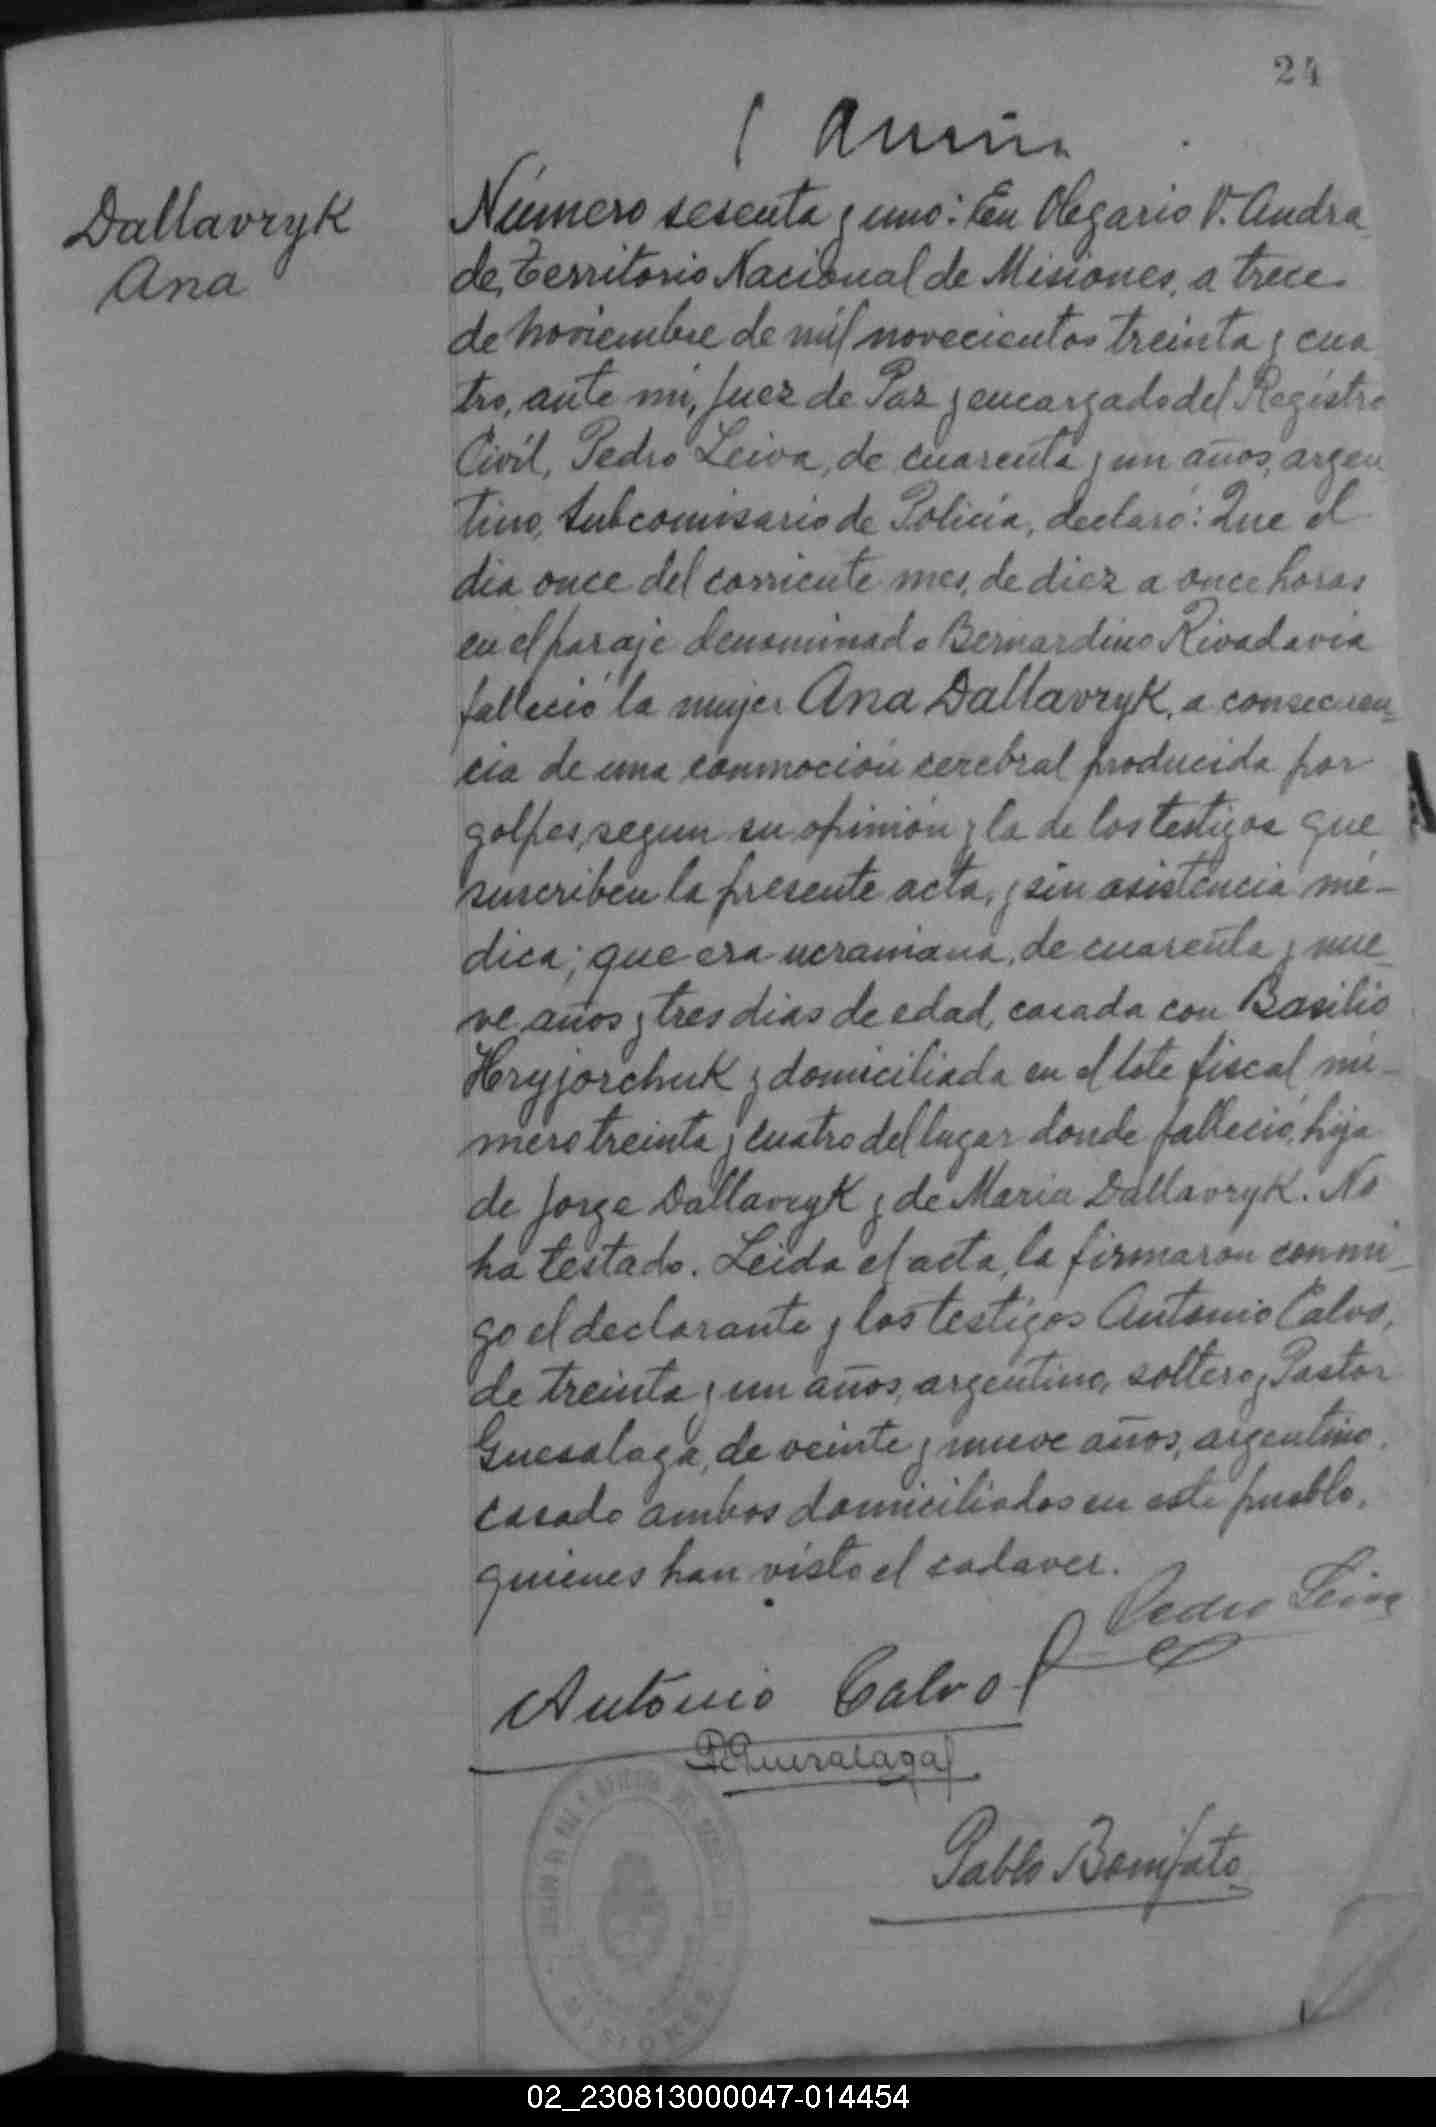 24
Dallavryk
Ana
Número sesenta y uno: En Olegario V. Andra
de, Territorio Nacional de Misiones, a trece
de noviembre de mil novecientos treinta y cua
tro, ante mí, Juez de Paz y encargado del Registro
Civil, Pedro Leiva, de cuarenta y un años, argen
tino, Subcomisario de Policía, declaró: Que el
dia once del corriente mes, de diez a once horas
en el paraje denominado Bernardino Rivadavia
falleció la mujer Ana Dallavryk, a consecuen_
cia de una conmoción cerebral producida por
golpes, segun su opinión y la de los testigos que
suscriben la presente acta, y sin asistencia mé-
dica; que era ucraniana, de cuarenta y nue_
ve años y tres dias de edad, casada con Basilio
Hryjorchuk y domiciliada en el lote fiscal nú-
mero treinta y cuatro del lugar donde falleció, hija
de Jorge Dallavryk y de María Dallavryk. No
ha testado. Leida el acta, la firmaron conmi_
go el declarante y los testigos Antonio Calvo,
de treinta y un años, argentino, soltero y Pastor
Guesalaga, de veinte y nueve años, argentino,
casado ambos domiciliados en este pueblo,
quienes han visto el cadaver.
Pedro Leiva
Antonio Calvo
P. Guesalaga
Pablo Bonifato
MISIONES
02_230813000047-014454